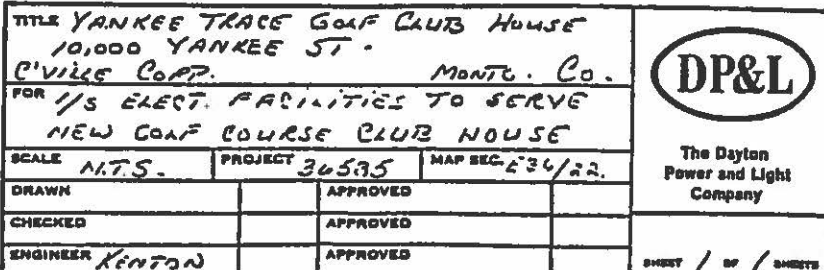 TITLE YANKEE TRACE GOLF CLUB HOUSE
10,000 YANKEE ST.
C'VILLE CORP. MONTG. Co.
FOR I/S ELECT. FACILITIES TO SERVE
NEW GOLF COURSE CLUB HOUSE
SCALE N.T.S. PROJECT 36535 MAP SEC. E36/22.
DRAWN APPROVED
CHECKED APPROVED
ENGINEER KENTON APPROVED
DP&L
The Dayton
Power and Light
Company
SHEET 1 OF 1 SHEETS